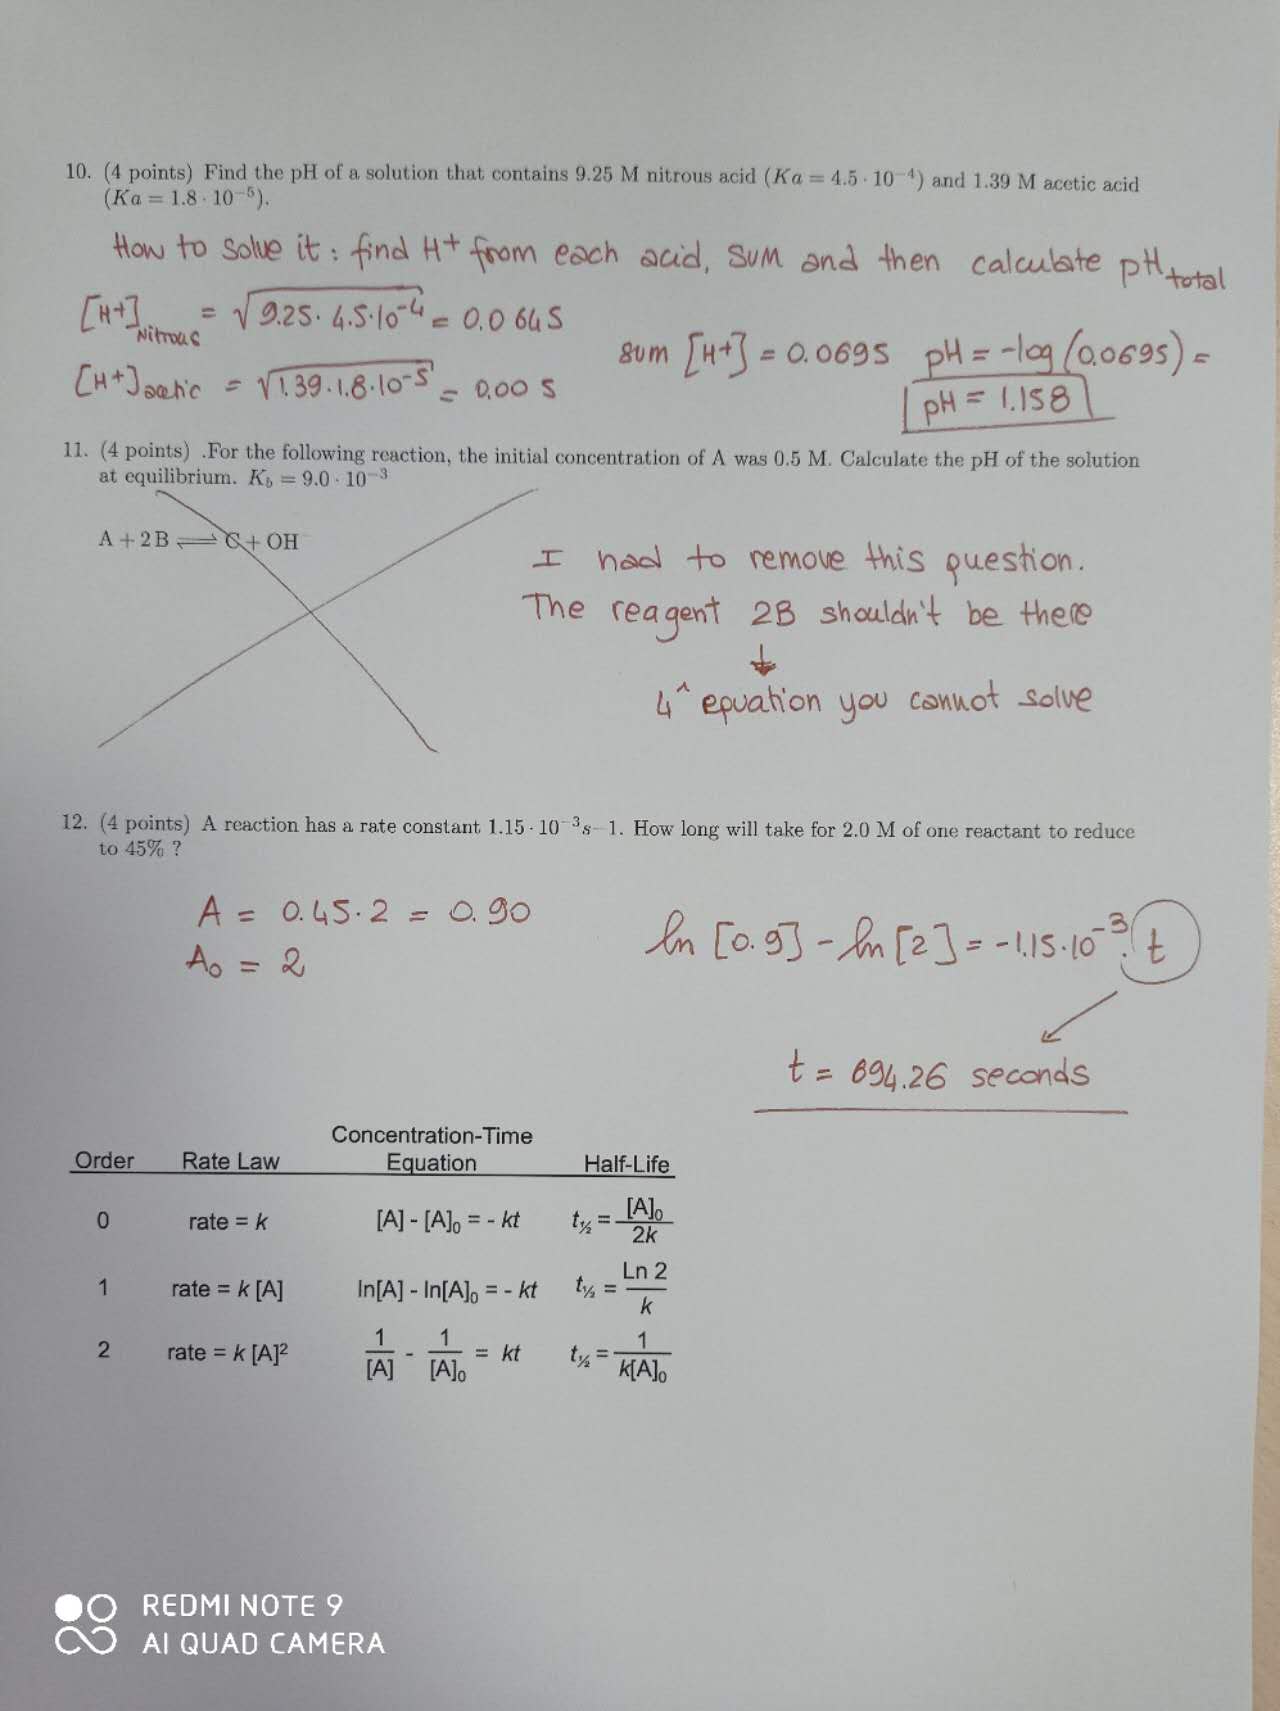 10. (4 points) Find the pH of a solution that contains 9.25 M nitrous acid (Ka = 4.5 · 10⁻⁴) and 1.39 M acetic acid
(Ka = 1.8 · 10⁻⁵).
How to solve it : find H+ from each acid, sum and then calculate pH total
[H+] Nitrous = √9.25 · 4.5·10⁻⁴ = 0.0645
[H+] acetic = √1.39·1.8·10⁻⁵ = 0.005
sum [H+] = 0.0695 pH = -log (0.0695) =
pH = 1.158
11. (4 points) .For the following reaction, the initial concentration of A was 0.5 M. Calculate the pH of the solution
at equilibrium. K_b = 9.0 · 10⁻³
A + 2B ⇌ C + OH⁻
I had to remove this question.
The reagent 2B shouldn't be there
↓
4^ equation you cannot solve
12. (4 points) A reaction has a rate constant 1.15 · 10⁻³s−1. How long will take for 2.0 M of one reactant to reduce
to 45% ?
A = 0.45·2 = 0.90
A₀ = 2
ln [0.9] - ln [2] = -1.15·10⁻³ · t
t = 694.26 seconds
Order Rate Law Concentration-Time Equation Half-Life
0 rate = k [A] - [A]₀ = - kt t½ = [A]₀ / 2k
1 rate = k [A] ln[A] - ln[A]₀ = - kt t½ = Ln 2 / k
2 rate = k [A]² 1/[A] - 1/[A]₀ = kt t½ = 1 / k[A]₀
REDMI NOTE 9
AI QUAD CAMERA